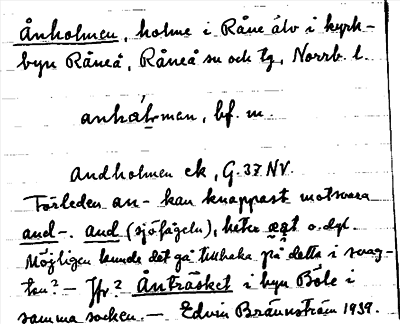 Ånholmen, holme i Råne älv i kyrk-
byn Råneå, Råneå sn och tg, Norrb. l.
anhålman, bf. m.
Andholmen ek, G. 37 NV.
Förleden an- kan knappast motsvara
and-. and (sjöfågeln), heter o.dyl.
Möjligen kunde det gå tillbaka på detta i
Jfr? Ånträsket i byn Böle i
samma socken. — Edvin Brännström 1939.